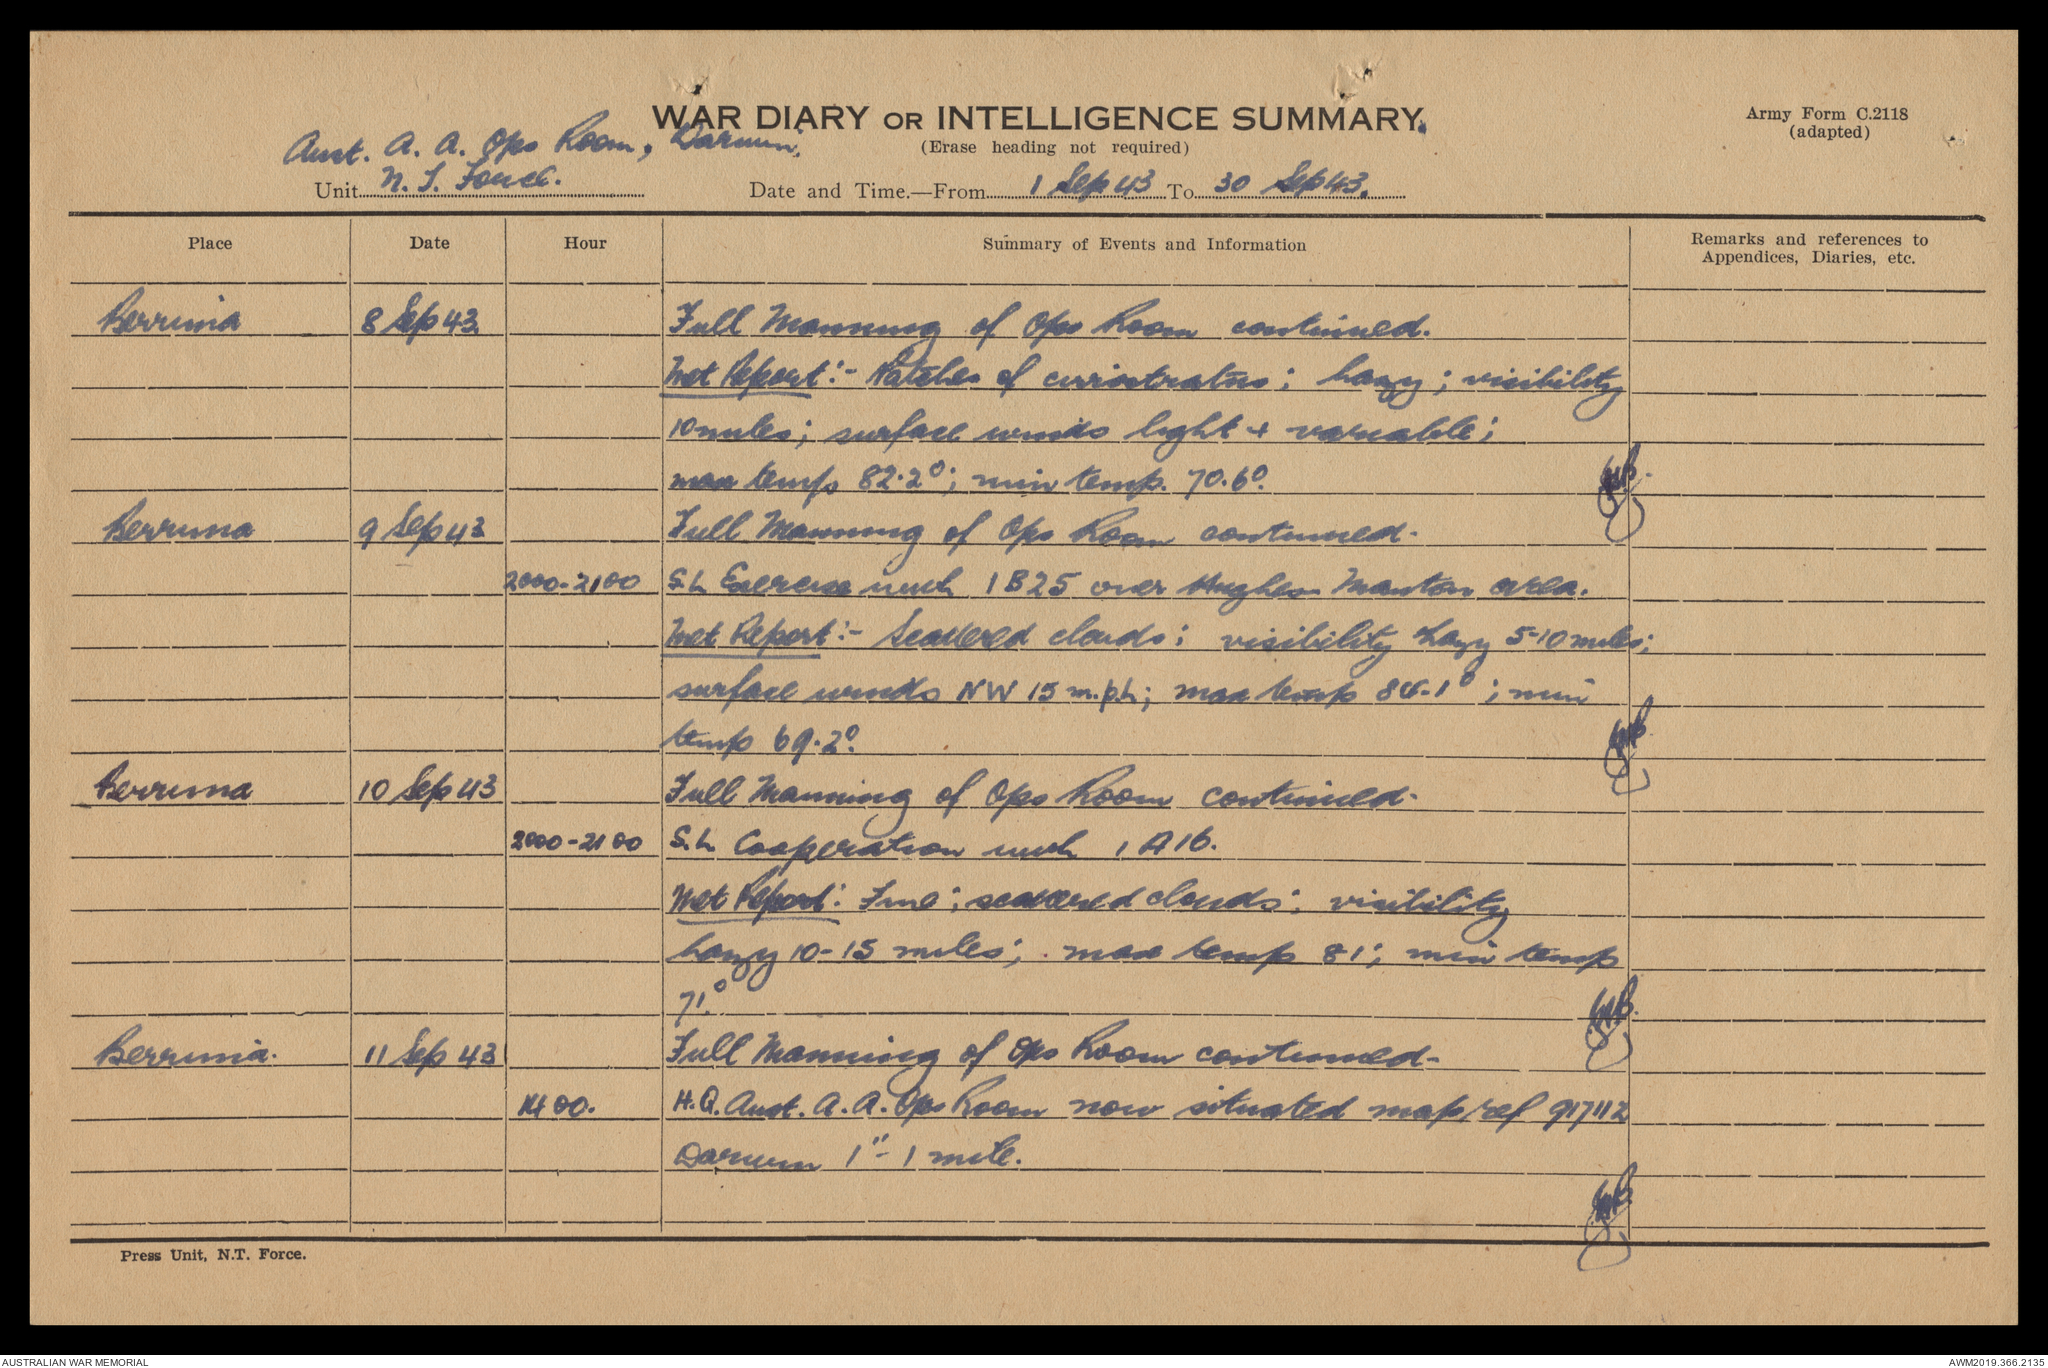 WAR DIARY OR INTELLIGENCE SUMMARY.
(Erase heading not required)
Army Form C.2118
(adapted)
Aust. A. A. Ops Room, Darwin,
Unit N. T. Force.
Date and Time.—From 1 Sep 43 To 30 Sep 43.
Place Date Hour Summary of Events and Information Remarks and references to
Appendices, Diaries, etc.
Berrima 8 Sep 43 Full Manning of Ops Room continued.
Met Report:- Patches of cirrostratus; hazy; visibility
10 miles; surface winds light + variable;
max temp 82.2°; min temp. 70.6°.
Berrima 9 Sep 43 Full Manning of Ops Room continued.
2000-2100 S.L Exercise with 1 B25 over Hughes Manton area.
Met Report:- Scattered clouds; visibility hazy 5-10 miles;
surface winds NW 15 m.p.h; max temp; min
temp 69.2°.
Berrima 10 Sep 43 Full Manning of Ops Room continued.
2000-2100 S.L Cooperation with 1 A16.
Met Report: Fine; scattered clouds; visibility
hazy 10-15 miles; max temp 81; min temp
71°
Berrima. 11 Sep 43 Full Manning of Ops Room continued-
1400. H.Q. Aust. A. A. Ops Room now situated map ref 917112
Darwin 1"- 1 mile.
Press Unit, N.T. Force.
AUSTRALIAN WAR MEMORIAL AWM2019.366.2135